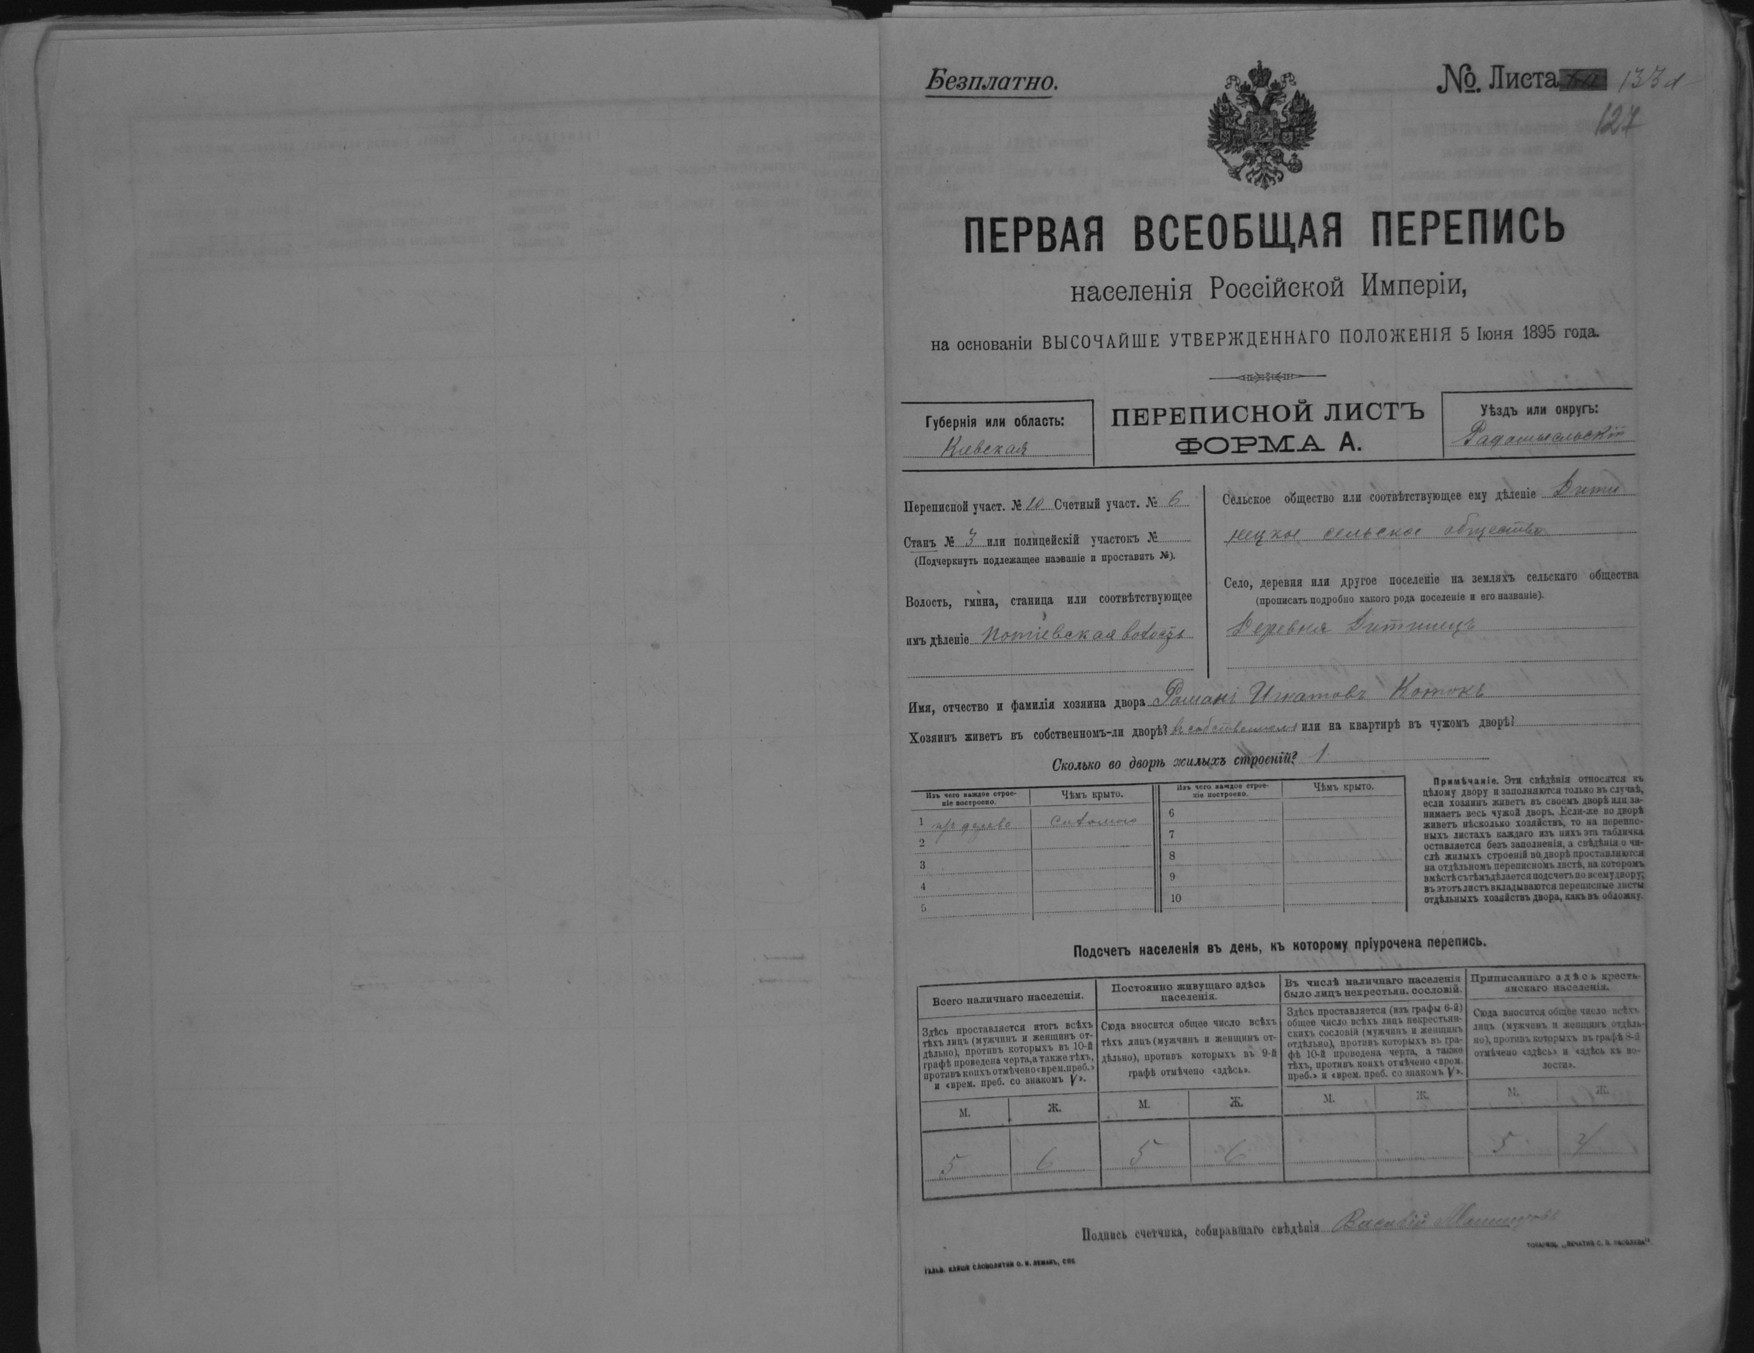 Безплатно.
№ Листа 133
127
ПЕРВАЯ ВСЕОБЩАЯ ПЕРЕПИСЬ
населенія Россійской Имперіи,
на основаніи ВЫСОЧАЙШЕ УТВЕРЖДЕННАГО ПОЛОЖЕНІЯ 5 Іюня 1895 года.
Губернія или область:
Кіевская
ПЕРЕПИСНОЙ ЛИСТЪ
ФОРМА А.
Уѣздъ или округъ:
Радомысльскій
Переписной участ. № 10 Счетный участ. № 6
Станъ № 3 или полицейскій участокъ №
(Подчеркнуть подлежащее названіе и проставить №).
Волость, гмина, станица или соотвѣтствующее
имъ дѣленіе Потіевская волость
Сельское общество или соотвѣтствующее ему дѣленіе
нецкое сельское общество
Село, деревня или другое поселеніе на земляхъ сельскаго общества
(прописать подробно какого рода поселеніе и его названіе).
Деревня
Имя, отчество и фамилія хозяина двора Романъ Игнатовъ Котокъ
Хозяинъ живетъ въ собственномъ-ли дворѣ? въ собственномъ или на квартирѣ въ чужомъ дворѣ?
Сколько во дворѣ жилыхъ строеній? 1
Изъ чего каждое строе-
ніе построено.
Чѣмъ крыто.
Изъ чего каждое строе-
ніе построено.
Чѣмъ крыто.
1 изъ дерева соломою
2
3
4
5
6
7
8
9
10
Примѣчаніе. Эти свѣдѣнія относятся къ
цѣлому двору и заполняются только въ случаѣ,
если хозяинъ живетъ въ своемъ дворѣ или за-
нимаетъ весь чужой дворъ. Если-же во дворѣ
живетъ нѣсколько хозяйствъ, то на перепис-
ныхъ листахъ каждаго изъ нихъ эта табличка
оставляется безъ заполненія, а свѣдѣнія о чи-
слѣ жилыхъ строеній во дворѣ проставляются
на отдѣльномъ переписномъ листѣ, на которомъ
вмѣстѣ съ тѣмъ дѣлается подсчетъ по всему двору;
въ этотъ листъ вкладываются переписные листы
отдѣльныхъ хозяйствъ двора, какъ въ обложку.
Подсчетъ населенія въ день, къ которому пріурочена перепись.
Всего наличнаго населенія.
Здѣсь проставляется итогъ всѣхъ
тѣхъ лицъ (мужчинъ и женщинъ от-
дѣльно), противъ которыхъ въ 10-й
графѣ проведена черта, а также тѣхъ,
противъ коихъ отмѣчено «врем. преб.»
и «врем. преб. со знакомъ V».
Постоянно живущаго здѣсь
населенія.
Сюда вносится общее число всѣхъ
тѣхъ лицъ (мужчинъ и женщинъ от-
дѣльно), противъ которыхъ въ 9-й
графѣ отмѣчено «здѣсь».
Въ числѣ наличнаго населенія
было лицъ некрестьян. сословій.
Здѣсь проставляется (изъ графы 6-й)
общее число всѣхъ лицъ некрестьян-
скихъ сословій (мужчинъ и женщинъ
отдѣльно), противъ которыхъ въ гра-
фѣ 10-й проведена черта, а также
тѣхъ, противъ коихъ отмѣчено «врем.
преб.» и «врем. преб. со знакомъ V».
Приписаннаго здѣсь кресть-
янскаго населенія.
Сюда вносится общее число всѣхъ
лицъ (мужчинъ и женщинъ отдѣль-
но), противъ которыхъ въ графѣ 8-й
отмѣчено «здѣсь» и «здѣсь въ во-
лости».
М. Ж. М. Ж. М. Ж. М. Ж.
5 6 5 6 5 4
Подпись счетчика, собиравшаго свѣдѣнія Василій
ГАЛЬВ. КЛИШЕ СЛОВОЛИТНИ О. И. ЛЕМАНЪ, СПБ.
ТОВАРИЩ. „ПЕЧАТНЯ С. П. ЯКОВЛЕВА“